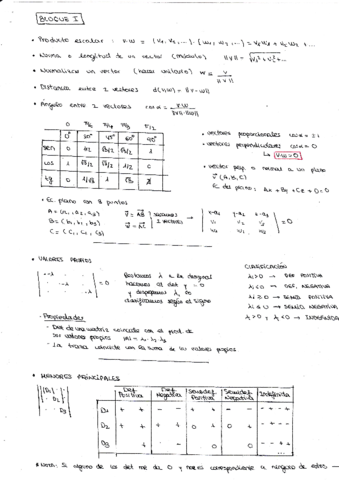 BLOQUE I
• Producto escalar : v·w = (v₁, v₂, ...) · (w₁, w₂, ...) = v₁w₁ + v₂w₂ + ...
• Norma o longitud de un vector (módulo) ||v|| = √v₁² + v₂² + ...
• Normalizar un vector (hacer unitario) w = v / ||v||
• Distancia entre 2 vectores d(v,w) = ||v - w||
• Ángulo entre 2 vectores cos α = v·w / ||v||·||w||
0 π/6 π/4 π/3 π/2
0° 30° 45° 60° 90°
sen 0 1/2 √2/2 √3/2 1
cos 1 √3/2 √2/2 1/2 0
tg 0 1/√3 1 √3
• vectores proporcionales cos α = ±1
• vectores perpendiculares cos α = 0
↳ v·w = 0
• vector perp. o normal a un plano
v⃗ (A, B, C)
Ec del plano : Ax + By + Cz + D = 0
• Ec. plano con 3 puntos
A = (a₁, a₂, a₃)
B = (b₁, b₂, b₃)
C = (c₁, c₂, c₃)
v⃗ = AB
w⃗ = AC
sacamos 2 vectores
x-a₁ y-a₂ z-a₃
v₁ v₂ v₃
w₁ w₂ w₃
= 0
• VALORES PROPIOS
-λ
-λ
-λ
= 0
Restamos λ a la diagonal
hacemos el det y = 0
y despejamos λ, so
clasificamos según el signo
CLASIFICACIÓN
λ > 0 → DEF POSITIVA
λ < 0 → DEF. NEGATIVA
λ ≥ 0 → SEMID POSITIVA
λ ≤ 0 → SEMID NEGATIVA
λ > 0 y λ < 0 → INDEFINIDA
- Propiedades
- Det de una matriz coincide con el prod. de
sus valores propios |A| = λ₁·λ₂·λ₃
- La traza coincide con la suma de sus valores propios
• MENORES PRINCIPALES
D₁
D₂
D₃
Def. Positiva Def. Negativa Semidef. Positiva Semidef. Negativa Indefinida
D₁
D₂
D₃
• NOTA: Si alguno de los det me da 0 y no es correspondiente a ninguno de estos →